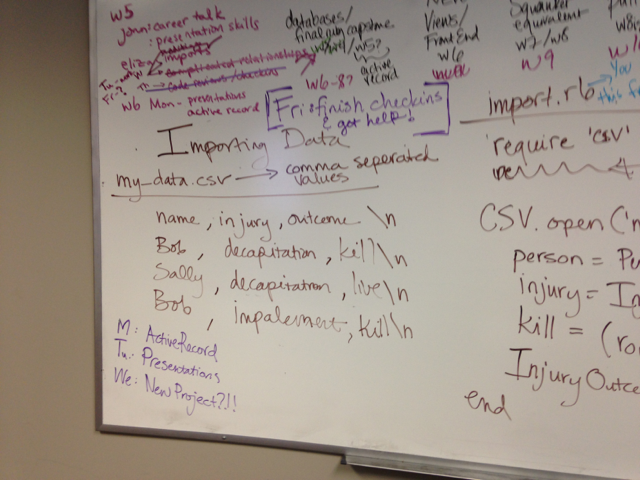 w5
jonn: career talk
: presentation skills
imports
code reviews/checkins
w6 Mon - presentations
active record
databases/
w5?
active
record
w6-8?
Views/
Front End
w6
equivalent
w7/w8
w9
Fri: finish checkins
& got help!
import.rb
You
Importing Data
my_data.csv → comma seperated
values
name, injury, outcome \n
Bob, decapitation, kill \n
Sally, decapitation, live \n
Bob, impalement, kill \n
M: ActiveRecord
Tu: Presentations
We: New Project?!!
require 'csv'
CSV.open('m
person = Pu
injury = In
kill = (ro
InjuryOutco
end